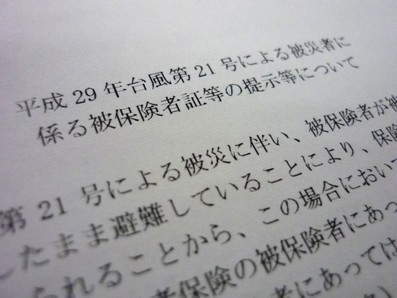 平成 29 年台風第 21 号による被災者に
係る被保険者証等の提示等について
第 21 号による被災に伴い、被保険者が被
したまま避難していることにより、保険
られることから、この場合において
者保険の被保険者にあっ
者にあっては